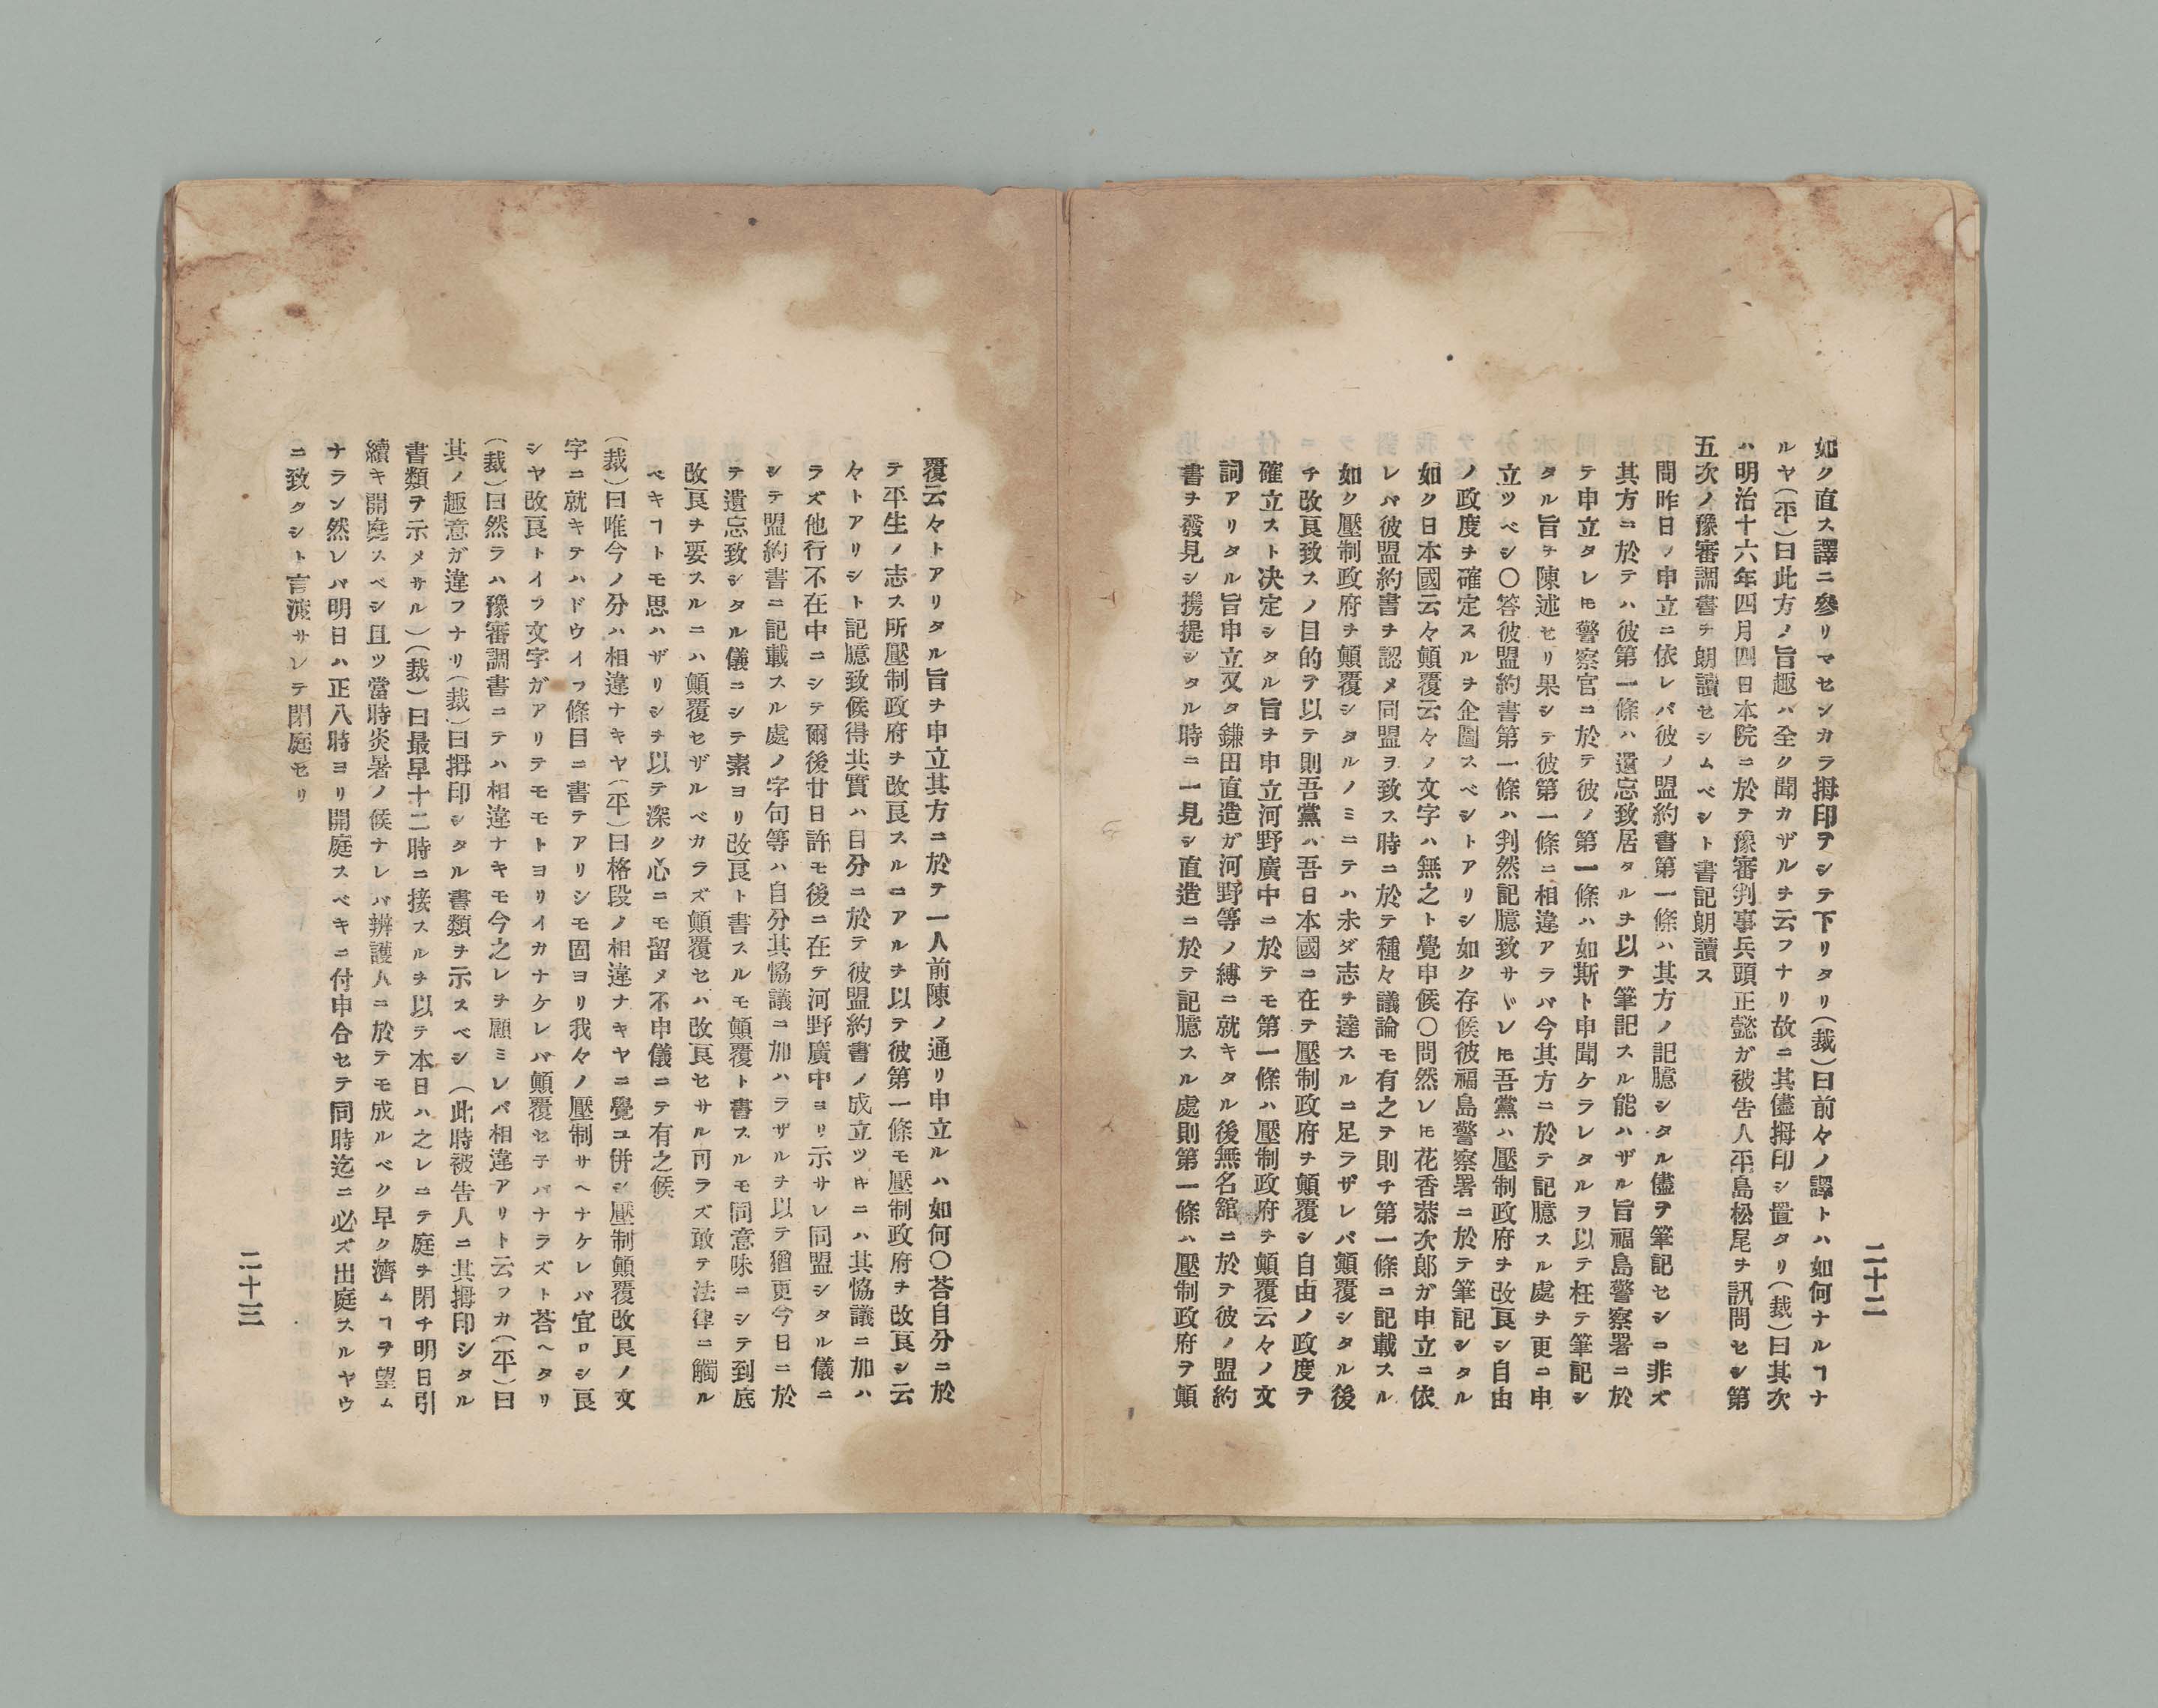 二十二
如ク直ス譯ニ參リマセンカラ拇印ヲシテ下リタリ（裁）曰前々ノ譯トハ如何ナルヿナ
ルヤ（平）曰此方ノ旨趣ハ全ク聞カザルヲ云フナリ故ニ其儘拇印シ置タリ（裁）曰其次
ハ明治十六年四月四日本院ニ於テ豫審判事兵頭正懿ガ被告人平島松尾ヲ訊問セシ第
五次ノ豫審調書ヲ朗讀セシムベシト書記朗讀ス
問昨日ノ申立ニ依レバ彼ノ盟約書第一條ハ其方ノ記臆シタル儘ヲ筆記セシニ非ズ
其方ニ於テハ彼第一條ハ遺忘致居タルヲ以テ筆記スル能ハザル旨福島警察署ニ於
テ申立タレ𪜈警察官ニ於テ彼ノ第一條ハ如斯ト申聞ケラレタルヲ以テ枉テ筆記シ
タル旨ヲ陳述セリ果シテ彼第一條ニ相違アラバ今其方ニ於テ記臆スル處ヲ更ニ申
立ツベシ〇答彼盟約書第一條ハ判然記臆致サヾレ𪜈吾黨ハ壓制政府ヲ改良シ自由
ノ政度ヲ確定スルヲ企圖スベシトアリシ如ク存候彼福島警察署ニ於テ筆記シタル
如ク日本國云々顛覆云々ノ文字ハ無之ト覺申候〇問然レ𪜈花香恭次郎ガ申立ニ依
レバ彼盟約書ヲ認メ同盟ヲ致ス時ニ於テ種々議論モ有之テ則チ第一條ニ記載スル
如ク壓制政府ヲ顛覆シタルノミニテハ未ダ志ヲ達スルニ足ラザレバ顛覆シタル後
チ改良致スノ目的ヲ以テ則吾黨ハ吾日本國ニ在テ壓制政府ヲ顛覆シ自由ノ政度ヲ
確立スト决定シタル旨ヲ申立河野廣中ニ於テモ第一條ハ壓制政府ヲ顛覆云々ノ文
詞アリタル旨申立又タ鎌田直造ガ河野等ノ縛ニ就キタル後無名舘ニ於テ彼ノ盟約
書ヲ發見シ携提シタル時ニ一見シ直造ニ於テ記臆スル處則第一條ハ壓制政府ヲ顛
覆云々トアリタル旨ヲ申立其方ニ於テ一人前陳ノ通リ申立ルハ如何〇荅自分ニ於
テ平生ノ志ス所壓制政府ヲ改良スルニアルヲ以テ彼第一條モ壓制政府ヲ改良シ云
々トアリシト記臆致候得共實ハ自分ニ於テ彼盟約書ノ成立ツ𪜈ニハ其恊議ニ加ハ
ラズ他行不在中ニシテ爾後廿日許モ後ニ在テ河野廣中ヨリ示サレ同盟シタル儀ニ
シテ盟約書ニ記載スル處ノ字句等ハ自分其恊議ニ加ハラザルヲ以テ猶更今日ニ於
テ遺忘致シタル儀ニシテ素ヨリ改良ト書スルモ顛覆ト書スルモ同意味ニシテ到底
改良ヲ要スルニハ顛覆セザルベカラズ顛覆セハ改良セサル可ラズ敢テ法律ニ觸ル
ベキヿトモ思ハザリシヲ以テ深ク心ニモ留メ不申儀ニテ有之候
（裁）曰唯今ノ分ハ相違ナキヤ（平）曰格段ノ相違ナキヤニ覺ユ併シ壓制顛覆改良ノ文
字ニ就キテハドウイフ條目ニ書テアリシモ固ヨリ我々ノ壓制サヘナケレバ宜ロシ良
シヤ改良トイフ文字ガアリテモモトヨリイカナケレバ顛覆セ子バナラズト荅ヘタリ
（裁）曰然ラハ豫審調書ニテハ相違ナキモ今之レヲ顧ミレバ相違アリト云フカ（平）曰
其ノ趣意ガ違フナリ（裁）曰拇印シタル書類ヲ示スベシ（此時被告人ニ其拇印シタル
書類ヲ示メサル）（裁）曰最早十二時ニ接スルヲ以テ本日ハ之レニテ庭ヲ閉チ明日引
續キ開庭スベシ且ツ當時炎暑ノ候ナレバ辨護人ニ於テモ成ルベク早ク濟ムヿヲ望ム
ナラン然レバ明日ハ正八時ヨリ開庭スベキニ付申合セテ同時迄ニ必ズ出庭スルヤウ
ニ致タシト言渡サレテ閉庭セリ
二十三